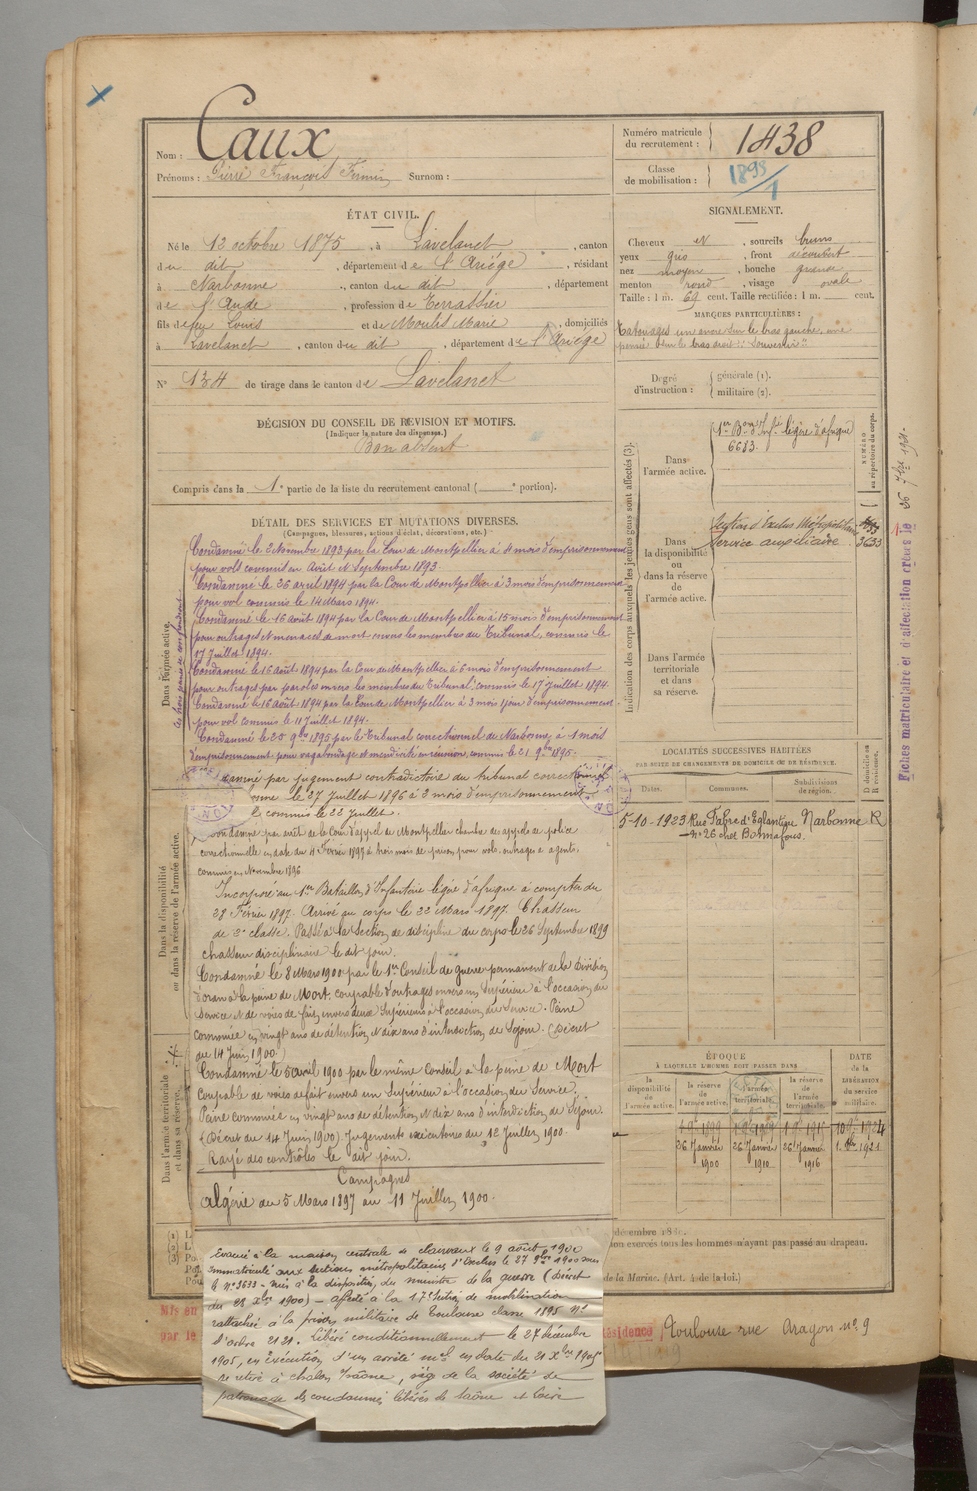 Nom : Caux
Prénoms : Pierre François Firmin Surnom :
Numéro matricule du recrutement : 1438
Classe de mobilisation : 1895/1
ÉTAT CIVIL.
Né le 13 octobre 1875, à Lavelanet, canton
du dit, département de l'Ariège, résidant
à Narbonne, canton du dit, département
de l'Aude, profession de Terrassier
fils de feu Louis et de Moulis Marie, domiciliés
à Lavelanet, canton du dit, département de l'Ariège
N° 134 de tirage dans le canton de Lavelanet
SIGNALEMENT.
Cheveux et, sourcils bruns
yeux gris, front découvert
nez moyen, bouche grande
menton rond, visage ovale
Taille : 1 m. 69 cent. Taille rectifiée : 1 m. cent.
MARQUES PARTICULIÈRES :
Tatouages un ancre sur le bras gauche, une
pensée sur le bras droit : "Souvenir"
Degré d'instruction : générale (1). militaire (2).
DÉCISION DU CONSEIL DE REVISION ET MOTIFS.
(Indiquer la nature des dispenses.)
Bon absent
Compris dans la 1e partie de la liste du recrutement cantonal ( e portion).
DÉTAIL DES SERVICES ET MUTATIONS DIVERSES.
(Campagnes, blessures, actions d'éclat, décorations, etc.)
Dans l'armée active.
Condamné le 2 Novembre 1893 par la Cour de Montpellier à mois d'emprisonnement
pour vols commis en Août et Septembre 1893.
Condamné le 26 avril 1894 par la Cour de Montpellier à 3 mois d'emprisonnement
pour vol commis le 14 Mars 1894.
Condamné le 16 août 1894 par la Cour de Montpellier à 15 mois d'emprisonnement
pour outrages et menaces de mort envers les membres du Tribunal, commis le
17 Juillet 1894.
Condamné le 16 Août 1894 par la Cour de Montpellier à 6 mois d'emprisonnement
pour outrages par paroles envers les membres du Tribunal, commis le 17 juillet 1894.
Condamné le 16 août 1894 par la Cour de Montpellier à 3 mois 1 jour d'emprisonnement
pour vol commis le 11 Juillet 1894.
Condamné le 25 9bre 1895 par le Tribunal correctionnel de Narbonne à 1 mois
d'emprisonnement pour vagabondage et mendicité en réunion, commis le 21 9bre 1895.
damné par jugement contradictoire du tribunal correctionnel
le 27 Juillet 1896 à 3 mois d'emprisonnement
commis le 22 Juillet.
Condamné par arrêt de la Cour d'appel de Montpellier chambre des appels de police
correctionnelle en date du 4 Février 1897 à trois mois de prison pour vols outrages à agents.
commis en Novembre 1896
Dans la disponibilité ou dans la réserve de l'armée active.
Incorporé au 1er Bataillon d'Infanterie légère d'afrique à compter du
28 Février 1897. Arrivé au corps le 22 Mars 1897. Chasseur
de 2e classe. Passé à la Section de discipline du corps le 26 Septembre 1899
chasseur disciplinaire le dit jour.
Condamné le 8 Mars 1900 par le 1er Conseil de guerre permanent de la Division
d'oran à la peine de Mort, coupable d'outrages envers un Supérieur à l'occasion du
Service et de voies de fait envers deux Supérieurs à l'occasion du Service. Peine
commuée en vingt ans de détention et dix ans d'interdiction de Séjour. (Décret
du 14 Juin 1900)
Condamné le 5 avril 1900 par le même Conseil à la peine de Mort
Coupable de voies de fait envers un Supérieur à l'occasion du Service.
Peine commuée en vingt ans de détention et dix ans d'interdiction de Séjour.
(Décret du 14 Juin 1900). Jugements exécutoires du 12 Juillet 1900.
Rayé des contrôles le dit jour.
Dans l'armée territoriale et dans sa réserve.
Campagnes
Algérie du 5 Mars 1897 au 11 Juillet 1900.
Evacué à la maison centrale de clairvaux le 9 août 1900
Immatriculé aux sections métropolitaines d'Exclus le 27 9bre 1900 sous
le n° 3633 - mis à la disposition du ministre de la guerre (Décret
du 28 Xbre 1900) - affecté à la 17e section de mobilisation
rattaché à la prison militaire de Toulouse classe 1895 n°
d'ordre 2121. Libéré conditionnellement le 27 décembre
1905, en exécution d'un arrêté mel en date du 21 Xbre 1905
se retire à chalon s/saône, siège de la société de
patronage des condamnés libérés de Saône et Loire
Indication des corps auxquels les jeunes gens sont affectés (3).
Dans l'armée active.
1er Bon d'Infie légère d'afrique
6683.
NUMÉRO au répertoire du corps.
Dans la disponibilité ou dans la réserve de l'armée active.
Section d'Exclus Métropolitains
Service auxiliaire 3633
Dans l'armée territoriale et dans sa réserve.
Fiches matriculaire et d'affectation créées le 26 7bre 1921.
LOCALITÉS SUCCESSIVES HABITÉES
PAR SUITE DE CHANGEMENTS DE DOMICILE OU DE RÉSIDENCE.
Dates. Communes. Subdivisions de région. D domicile ou R résidence.
5-10-1923 Rue Fabre d'Eglantine Narbonne R
n° 26 chez Bonnafous.
ÉPOQUE
À LAQUELLE L'HOMME DOIT PASSER DANS
la disponibilité de l'armée active. la réserve de l'armée active. l'armée territoriale. la réserve de l'armée territoriale.
DATE de la LIBÉRATION du service militaire.
26 Janvier 1900 26 Janvier 1910 26 Janvier 1916 1921
décembre 18
son exercés tous les hommes n'ayant pas passé au drapeau.
de la Marine. (Art. 4 de la loi.)
Mis en
par le
Résidence Toulouse rue Aragon n° 9